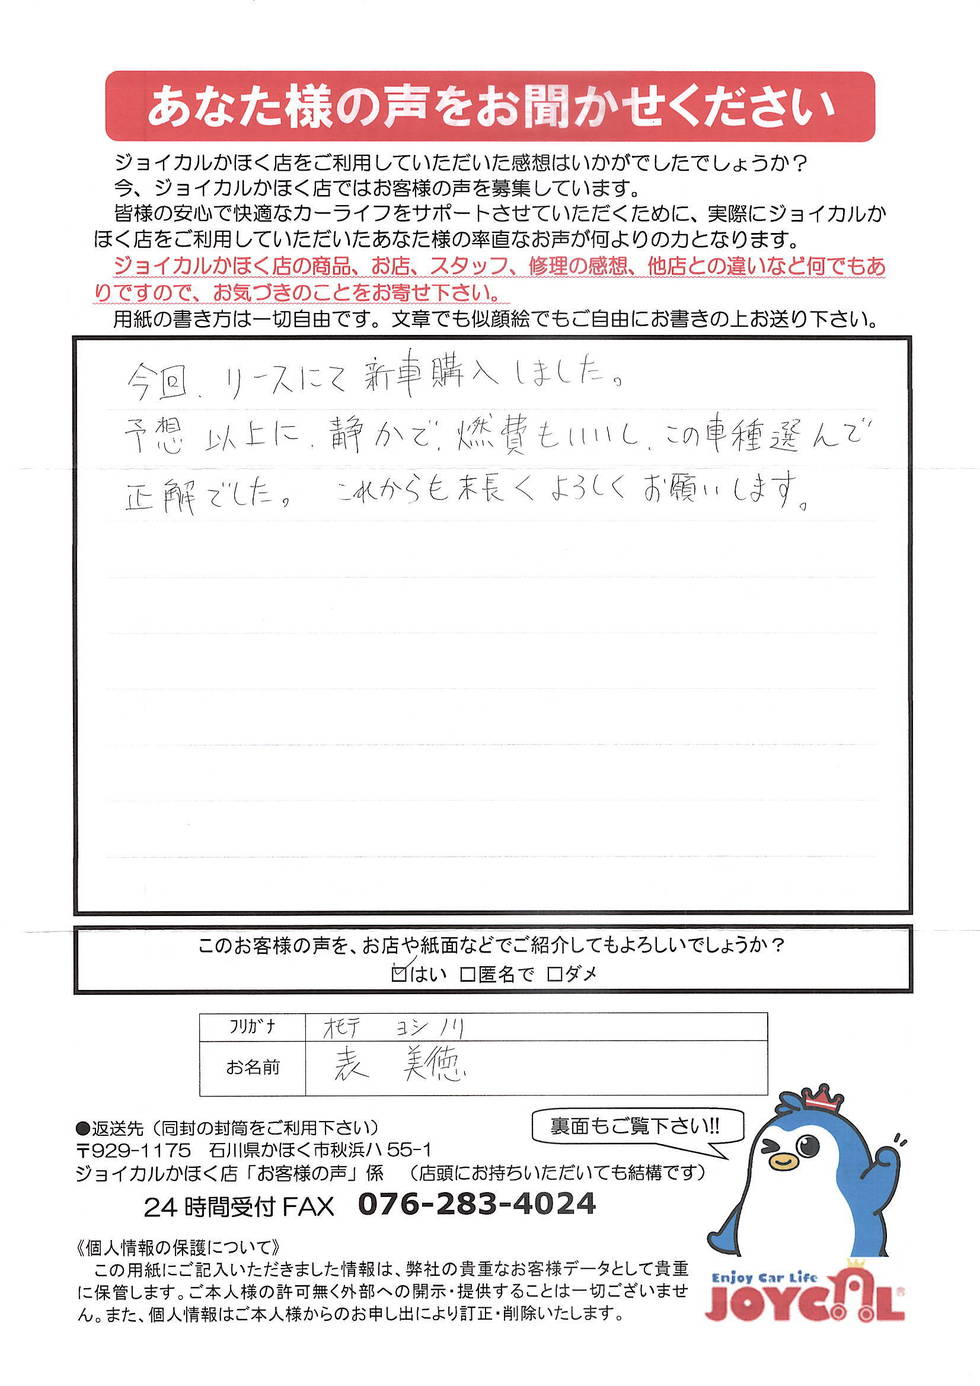 あなた様の声をお聞かせください
ジョイカルかほく店をご利用していただいた感想はいかがでしたでしょうか？
今、ジョイカルかほく店ではお客様の声を募集しています。
皆様の安心で快適なカーライフをサポートさせていただくために、実際にジョイカルか
ほく店をご利用していただいたあなた様の率直なお声が何よりの力となります。
ジョイカルかほく店の商品、お店、スタッフ、修理の感想、他店との違いなど何でもあ
りですので、お気づきのことをお寄せ下さい。
用紙の書き方は一切自由です。文章でも似顔絵でもご自由にお書きの上お送り下さい。
今回、リースにて新車購入しました。
予想以上に、静かで、燃費もいいし、この車種選んで
正解でした。これからも末長くよろしくお願いします。
このお客様の声を、お店や紙面などでご紹介してもよろしいでしょうか？
☑はい □匿名で □ダメ
フリガナ オモテ ヨシノリ
お名前 表 美徳
裏面もご覧下さい!!
●返送先（同封の封筒をご利用下さい）
〒929-1175 石川県かほく市秋浜ハ55-1
ジョイカルかほく店「お客様の声」係 （店頭にお持ちいただいても結構です）
24時間受付FAX 076-283-4024
《個人情報の保護について》
この用紙にご記入いただきました情報は、弊社の貴重なお客様データとして貴重
に保管します。ご本人様の許可無く外部への開示・提供することは一切ございませ
ん。また、個人情報はご本人様からのお申し出により訂正・削除いたします。
Enjoy Car Life
JOYCAL®